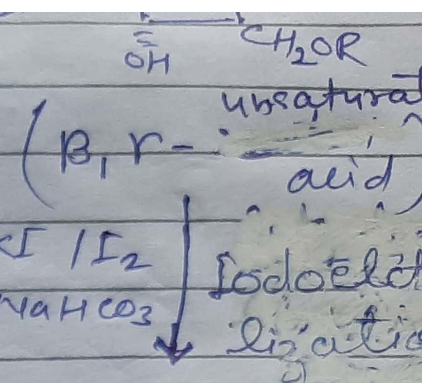 OH CH₂OR
unsatura
(β, γ-
acid)
I / I₂
NaHCO₃
Iodoela
lizatio